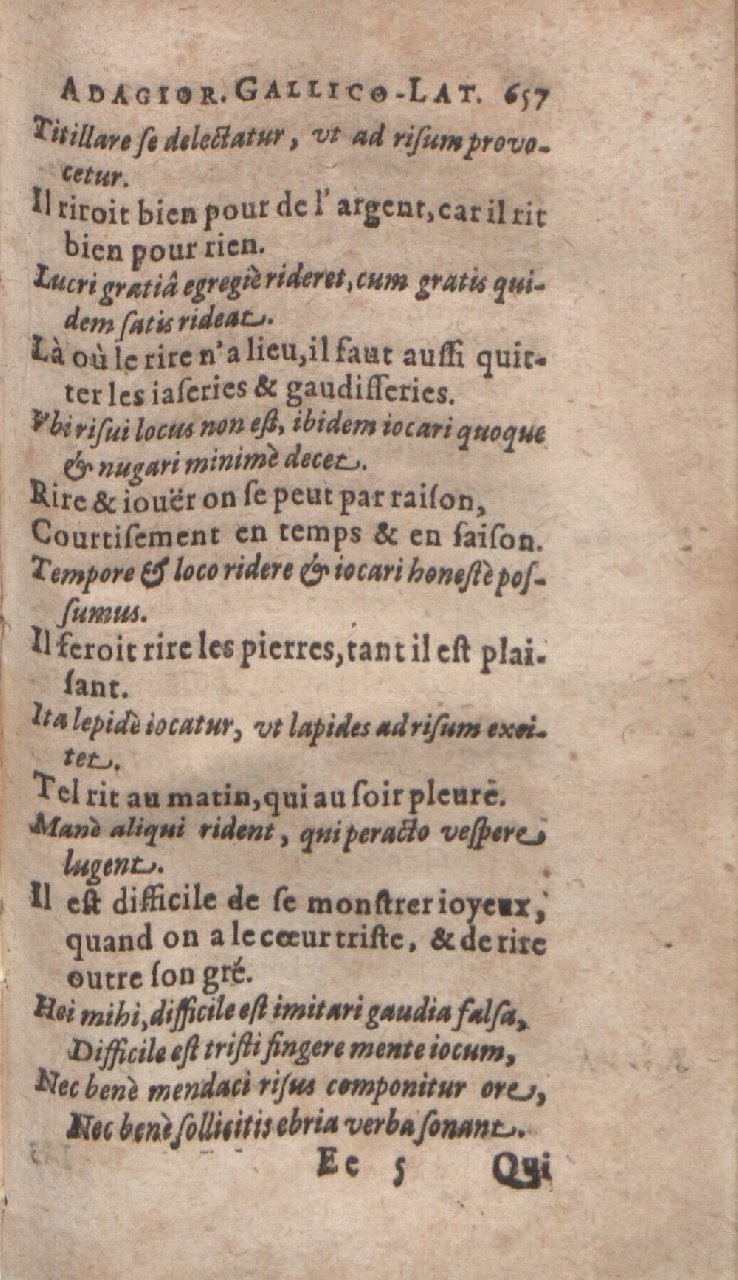 ADAGIOR. GALLICO-LAT. 657
Titillare ſe delectatur, vt ad riſum provo-
cetur.
Il riroit bien pour de l'argent, car il rit
bien pour rien.
Lucri gratiâ egregiè rideret, cum gratis qui-
dem ſatis rideat.
Là où le rire n'a lieu, il faut auſſi quit-
ter les iaſeries & gaudiſſeries.
Vbi riſui locus non eſt, ibidem iocari quoque
& nugari minimè decet.
Rire & iouër on ſe peut par raiſon,
Courtiſement en temps & en ſaiſon.
Tempore & loco ridere & iocari honeſtè poſ-
ſumus.
Il feroit rire les pierres, tant il eſt plai-
ſant.
Ita lepidè iocatur, vt lapides ad riſum exci-
tet.
Tel rit au matin, qui au ſoir pleure.
Manè aliqui rident, qui peracto veſpere
lugent.
Il eſt difficile de ſe monſtrer ioyeux,
quand on a le cœur triſte, & de rire
outre ſon gré.
Hei mihi, difficile eſt imitari gaudia falſa,
Difficile eſt triſti fingere mente iocum,
Nec benè mendaci riſus componitur ore,
Nec benè ſollicitis ebria verba ſonant.
Ee 5 Qui